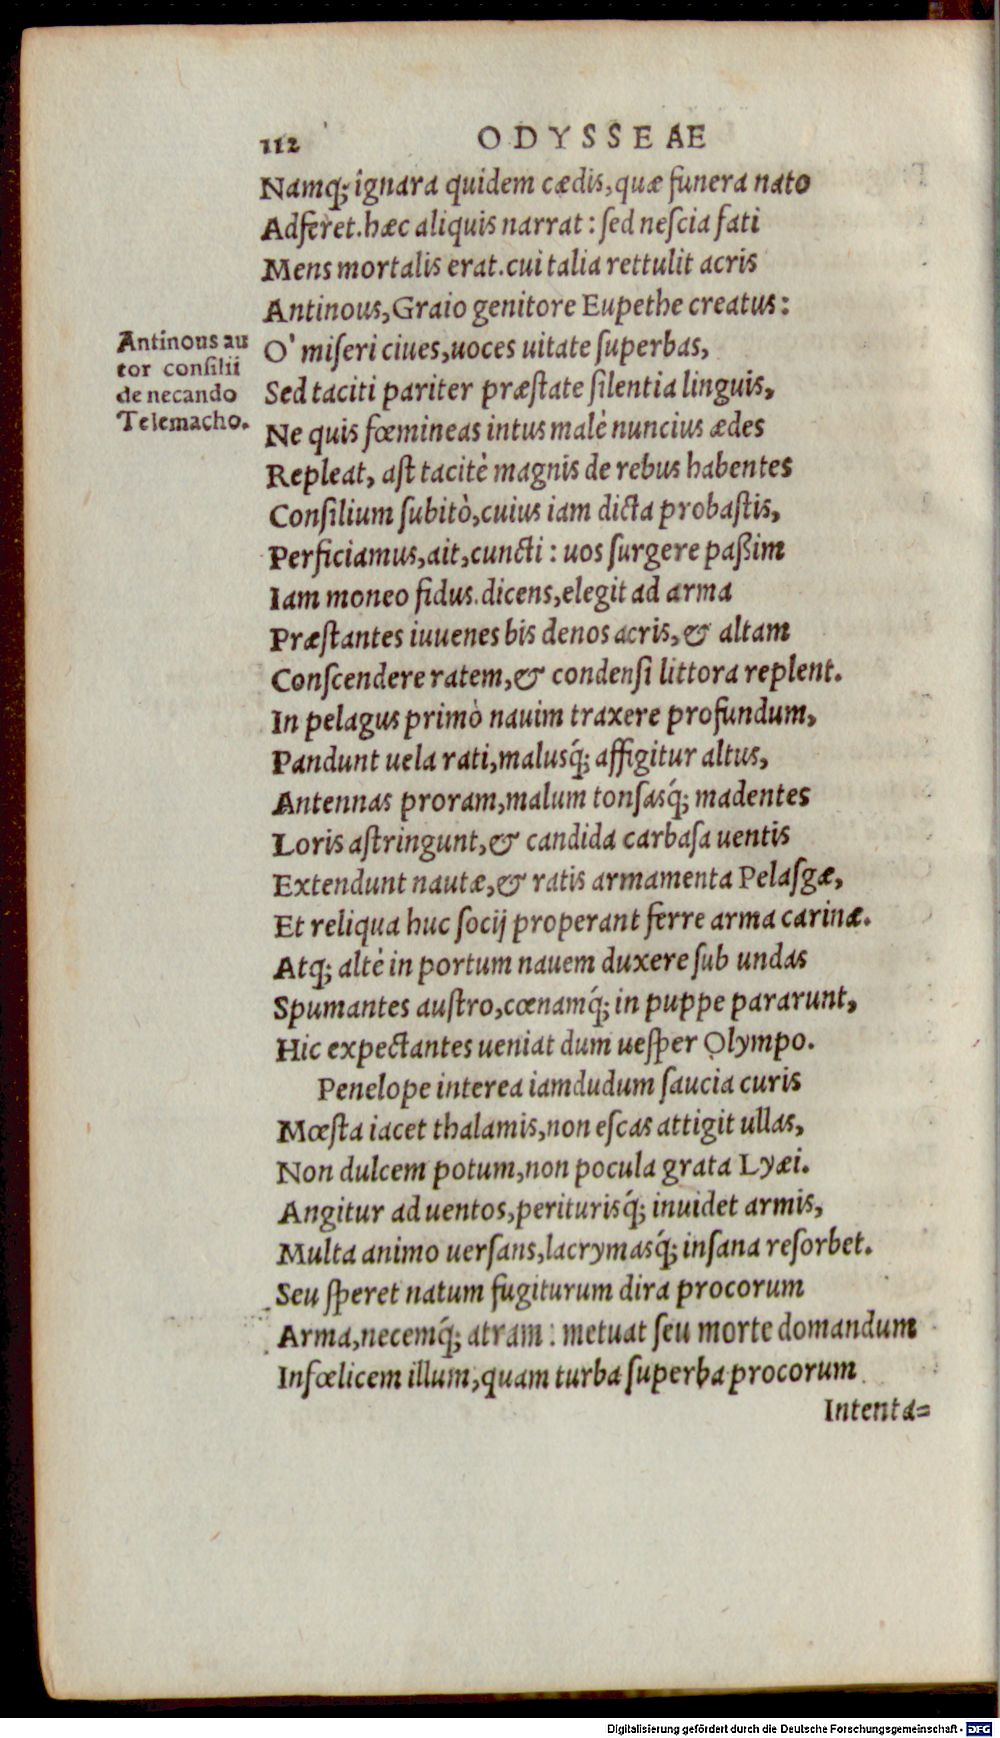 112 ODYSSEAE
Namq́; ignara quidem cædis, quæ funera nato
Adferet. hæc aliquis narrat: ſed neſcia fati
Mens mortalis erat. cui talia rettulit acris
Antinous, Graio genitore Eupethe creatus:
Antinous au
tor conſilii
de necando
Telemacho.
O' miſeri ciues, uoces uitate ſuperbas,
Sed taciti pariter præſtate ſilentia linguis,
Ne quis fœmineas intus malè nuncius ædes
Repleat, aſt tacitè magnis de rebus habentes
Conſilium ſubitò, cuius iam dicta probaſtis,
Perficiamus, ait, cuncti: uos ſurgere paßim
Iam moneo fidus. dicens, elegit ad arma
Præſtantes iuuenes bis denos acris, & altam
Conſcendere ratem, & condenſi littora replent.
In pelagus primò nauim traxere profundum,
Pandunt uela rati, malusq́; affigitur altus,
Antennas proram, malum tonſasq́; madentes
Loris aſtringunt, & candida carbaſa uentis
Extendunt nautæ, & ratis armamenta Pelaſgæ,
Et reliqua huc ſocij properant ferre arma carinæ.
Atq; altè in portum nauem duxere ſub undas
Spumantes auſtro, cœnamq́; in puppe pararunt,
Hic expectantes ueniat dum ueſper Olympo.
Penelope interea iamdudum ſaucia curis
Mœſta iacet thalamis, non eſcas attigit ullas,
Non dulcem potum, non pocula grata Lyæi.
Angitur ad uentos, periturisq́; inuidet armis,
Multa animo uerſans, lacrymasq́; inſana reſorbet.
Seu ſperet natum fugiturum dira procorum
Arma, necemq́; atram: metuat ſeu morte domandum
Infœlicem illum, quam turba ſuperba procorum
Intenta=
Digitalisierung gefördert durch die Deutsche Forschungsgemeinschaft - DFG